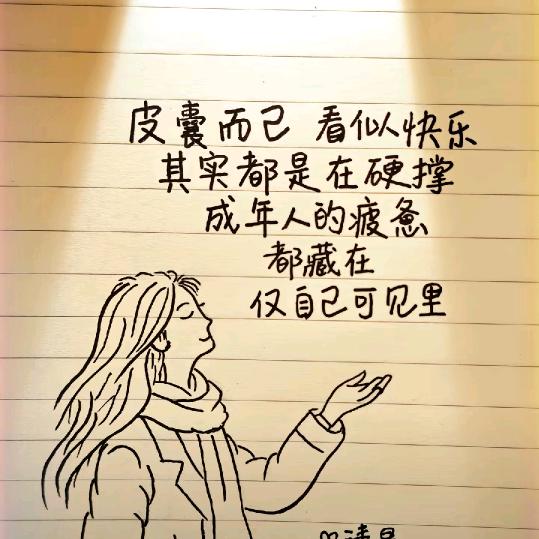 皮囊而已 看似快乐
其实都是在硬撑
成年人的疲惫
都藏在
仅自己可见里